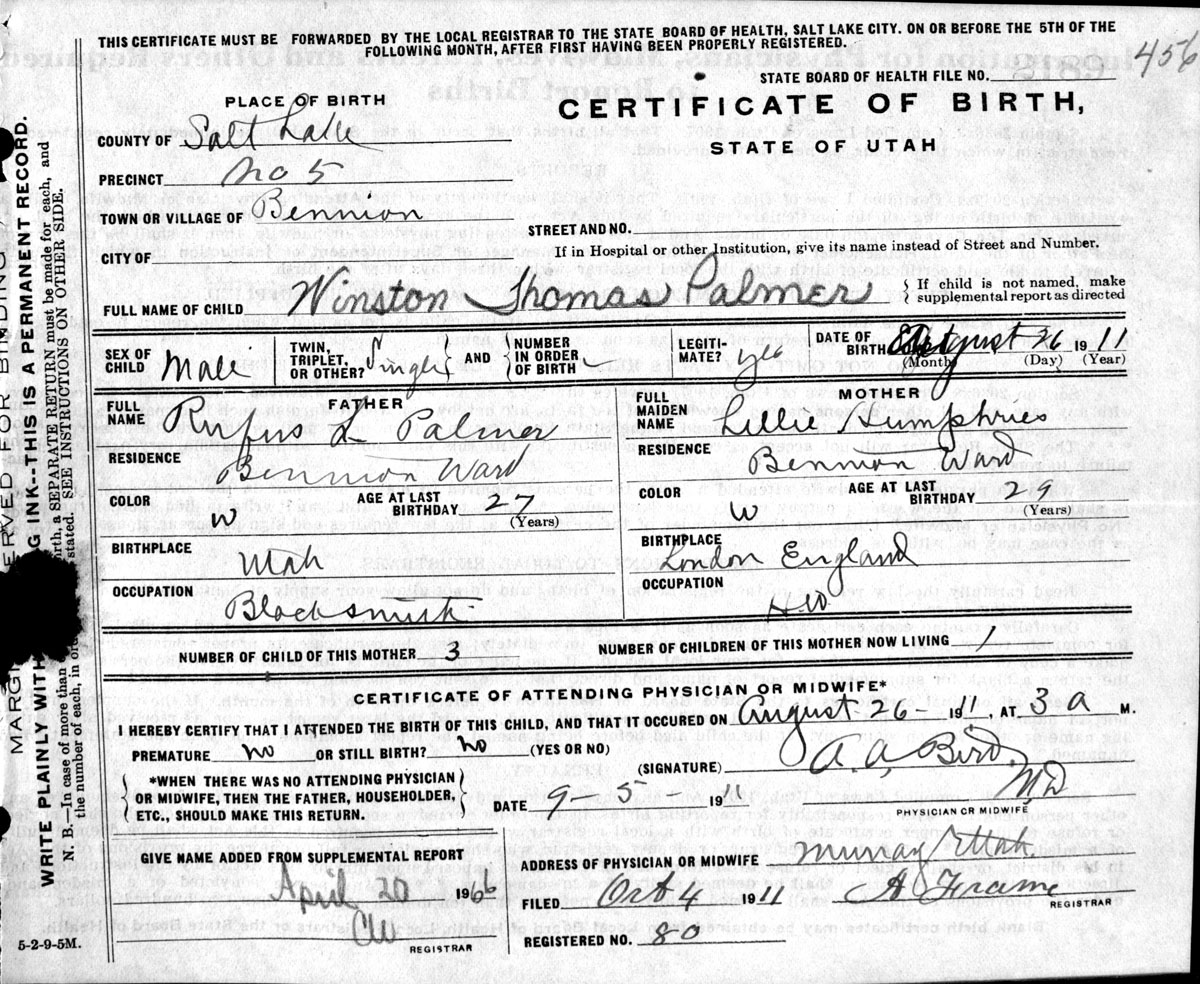 THIS CERTIFICATE MUST BE FORWARDED BY THE LOCAL REGISTRAR TO THE STATE BOARD OF HEALTH, SALT LAKE CITY. ON OR BEFORE THE 5TH OF THE
FOLLOWING MONTH, AFTER FIRST HAVING BEEN PROPERLY REGISTERED.
456
STATE BOARD OF HEALTH FILE NO.
PLACE OF BIRTH
CERTIFICATE OF BIRTH,
STATE OF UTAH
COUNTY OF Salt Lake
PRECINCT No 5
TOWN OR VILLAGE OF Bennion
STREET AND NO.
If in Hospital or other Institution, give its name instead of Street and Number.
CITY OF
FULL NAME OF CHILD Winston Thomas Palmer { If child is not named, make
supplemental report as directed
SEX OF CHILD Male
TWIN, TRIPLET, OR OTHER? Single
AND NUMBER IN ORDER OF BIRTH
LEGITIMATE? yes
DATE OF BIRTH August 26 1911
(Month) (Day) (Year)
FATHER
FULL NAME Rufus L Palmer
RESIDENCE Bennion Ward
COLOR W
AGE AT LAST BIRTHDAY 27 (Years)
BIRTHPLACE Utah
OCCUPATION Blacksmith
MOTHER
FULL MAIDEN NAME Lillie Humphries
RESIDENCE Bennion Ward
COLOR W
AGE AT LAST BIRTHDAY 29 (Years)
BIRTHPLACE London England
OCCUPATION HW
NUMBER OF CHILD OF THIS MOTHER 3
NUMBER OF CHILDREN OF THIS MOTHER NOW LIVING 1
CERTIFICATE OF ATTENDING PHYSICIAN OR MIDWIFE*
I HEREBY CERTIFY THAT I ATTENDED THE BIRTH OF THIS CHILD, AND THAT IT OCCURED ON August 26 - 1911, AT 3 a M.
PREMATURE no OR STILL BIRTH? no (YES OR NO)
(SIGNATURE) A. A. Bird MD
PHYSICIAN OR MIDWIFE
*WHEN THERE WAS NO ATTENDING PHYSICIAN
OR MIDWIFE, THEN THE FATHER, HOUSEHOLDER,
ETC., SHOULD MAKE THIS RETURN.
DATE 9-5- 1911
GIVE NAME ADDED FROM SUPPLEMENTAL REPORT
April 20 1966
REGISTRAR
ADDRESS OF PHYSICIAN OR MIDWIFE Murray Utah.
FILED Oct 4 1911 A Frame
REGISTRAR
REGISTERED NO. 80
5-2-9-5M.
WRITE PLAINLY WITH
G INK--THIS IS A PERMANENT RECORD.
N. B.—In case of more than
orth, SEPARATE RETURN must be made for each, and
the number of each, in or
stated. SEE INSTRUCTIONS ON OTHER SIDE.
MARGI
ERVED FOR BINDING